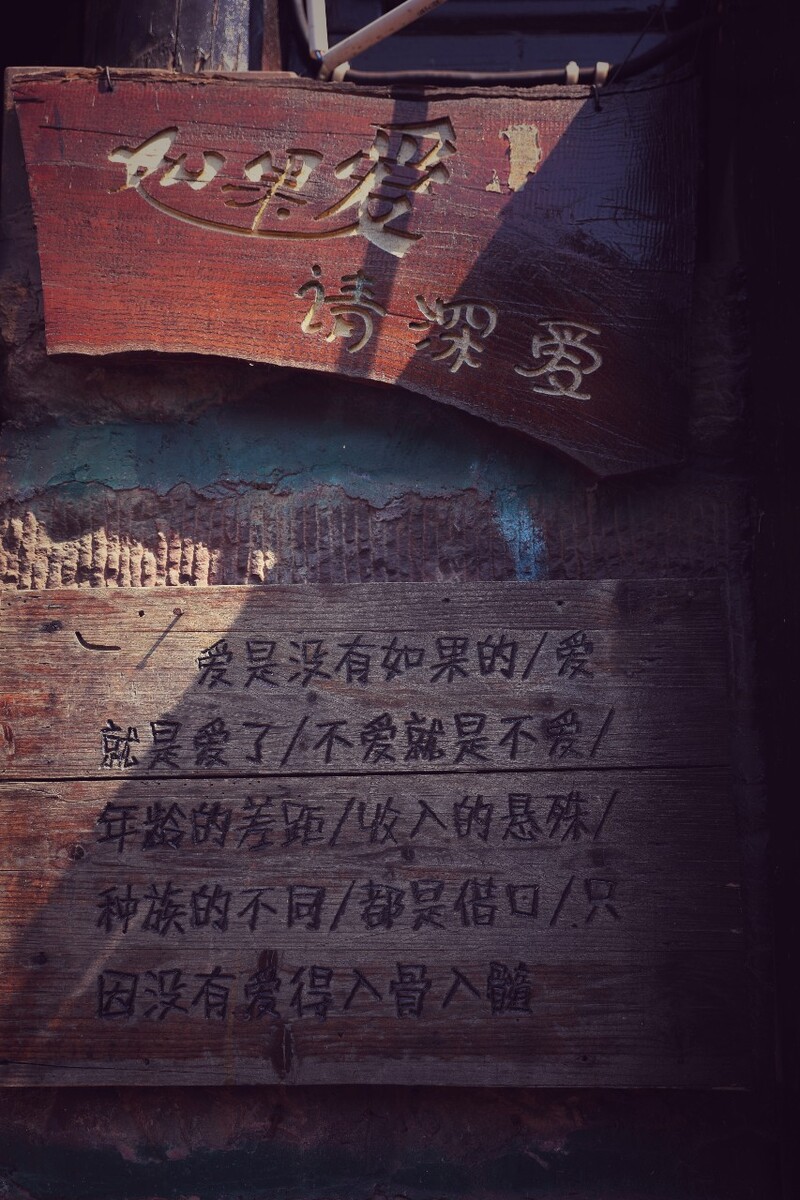 如果爱
请深爱
爱是没有如果的/爱
就是爱了/不爱就是不爱/
年龄的差距/收入的悬殊/
种族的不同/都是借口/只
因没有爱得入骨入髓